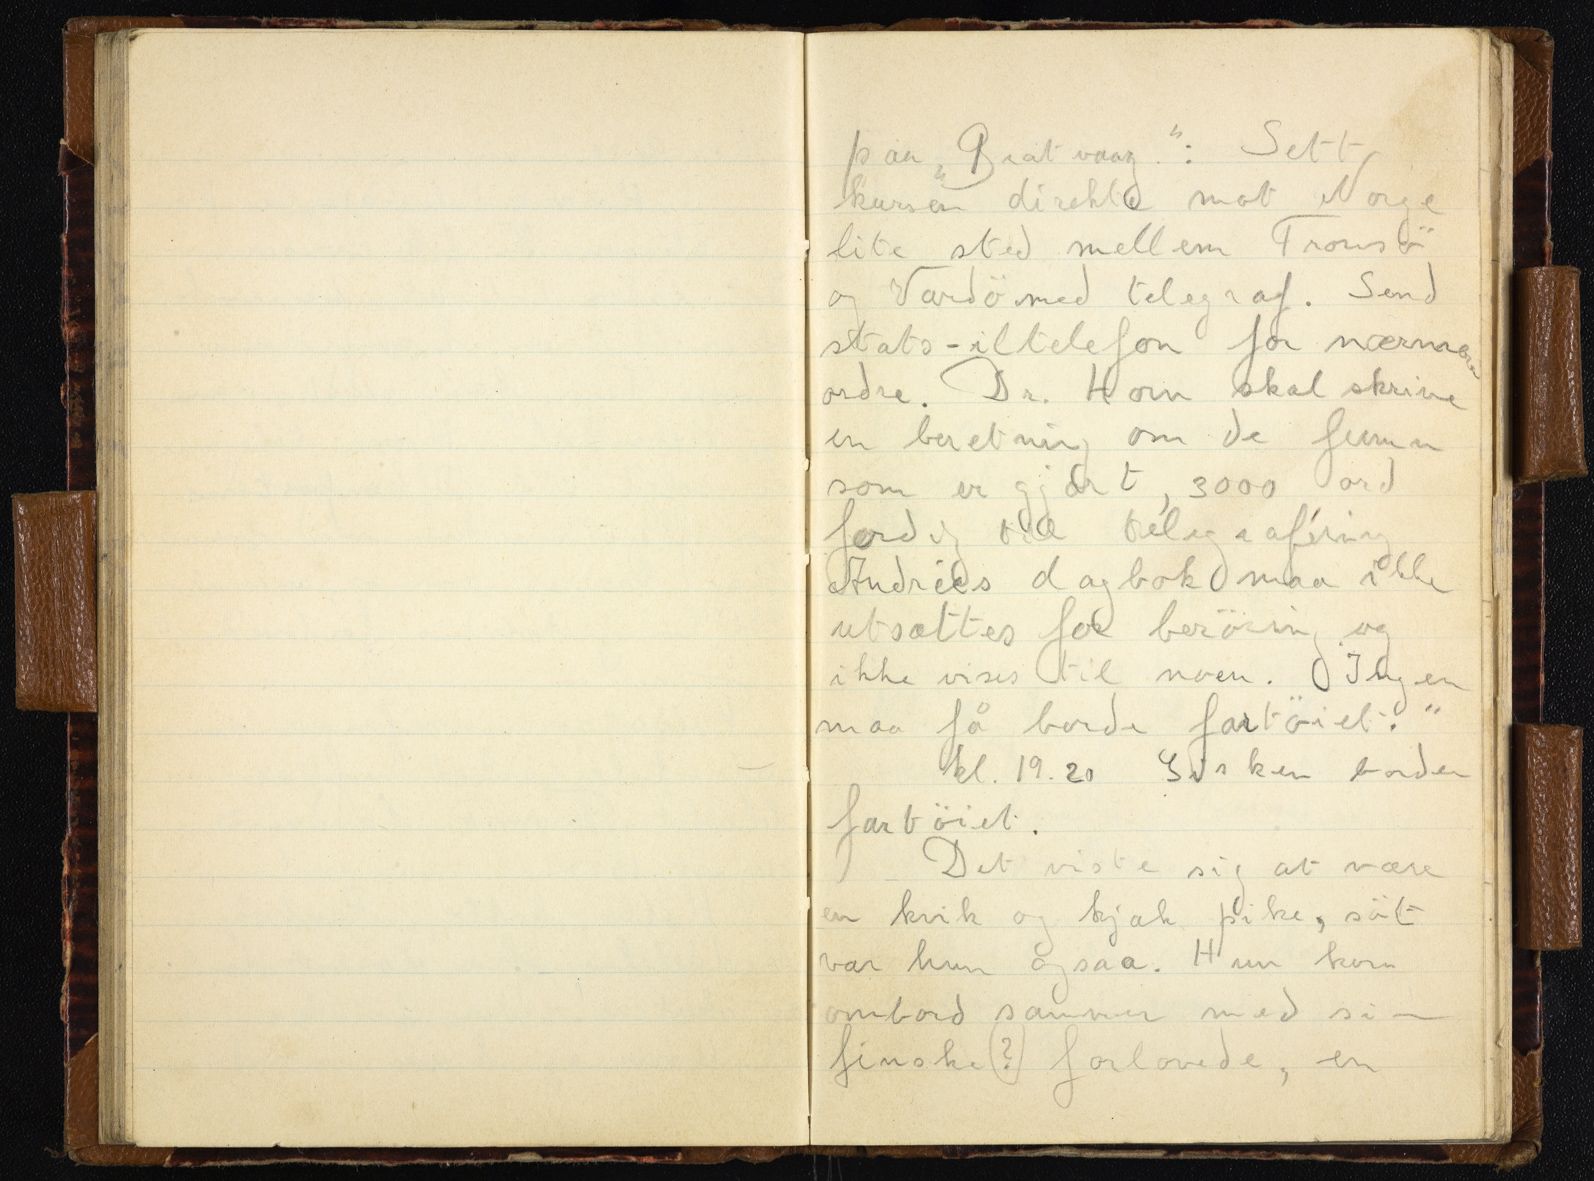 paa „Bratvaag.": Sett
kursen direkte mot Norge
lite sted mellem Tromsö
og Vardö med telegraf. Send
stats-iltelefon for nærmere
ordre. Dr. Horn skal skrive
en beretning om de funn
som er gjort, 3000 ord
ferdig til telegrafering
Andrées dagbok maa ikke
utsættes for beröring og
ikke vises til noen. Ingen
maa få borde fartöiet."
kl. 19.20 border
fartöiet.
Det viste sig at være
en kvik og kjæk pike, söt
var hun ogsaa. Hun kom
ombord sammen med sin
finske (?) forlovede, en